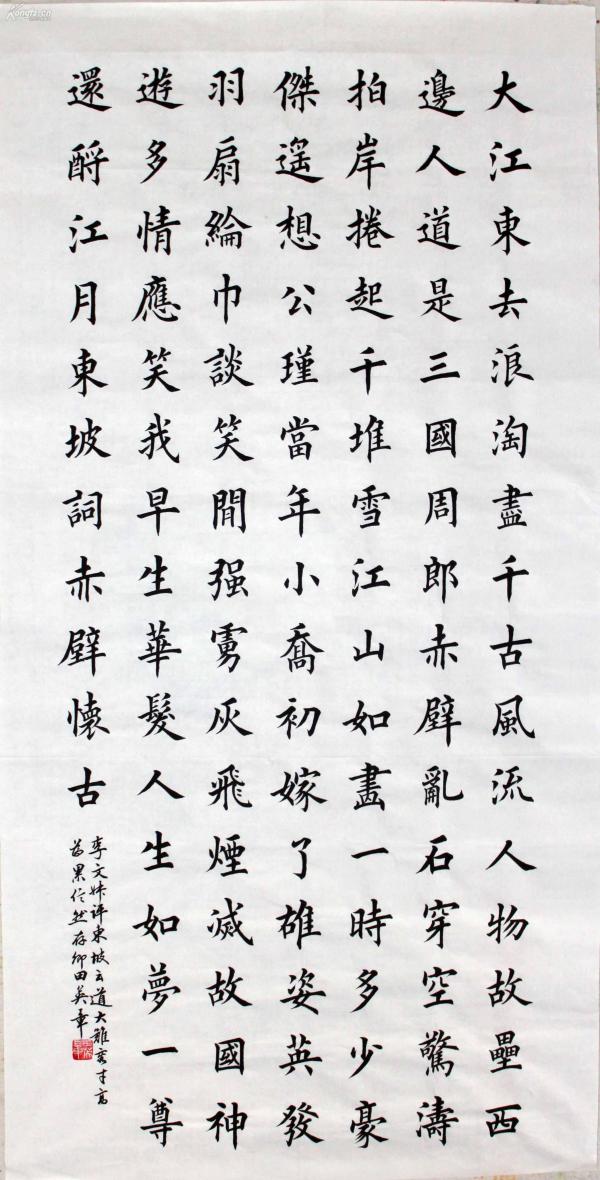 大江東去浪淘盡千古風流人物故壘西
邊人道是三國周郎赤壁亂石穿空驚濤
拍岸捲起千堆雪江山如畫一時多少豪
傑遥想公瑾當年小喬初嫁了雄姿英發
羽扇綸巾談笑間强虜灰飛煙滅故國神
遊多情應笑我早生華髮人生如夢一尊
還酹江月東坡詞赤壁懷古
李文姝評東坡云道大難容才高
為累信然存卿田英章